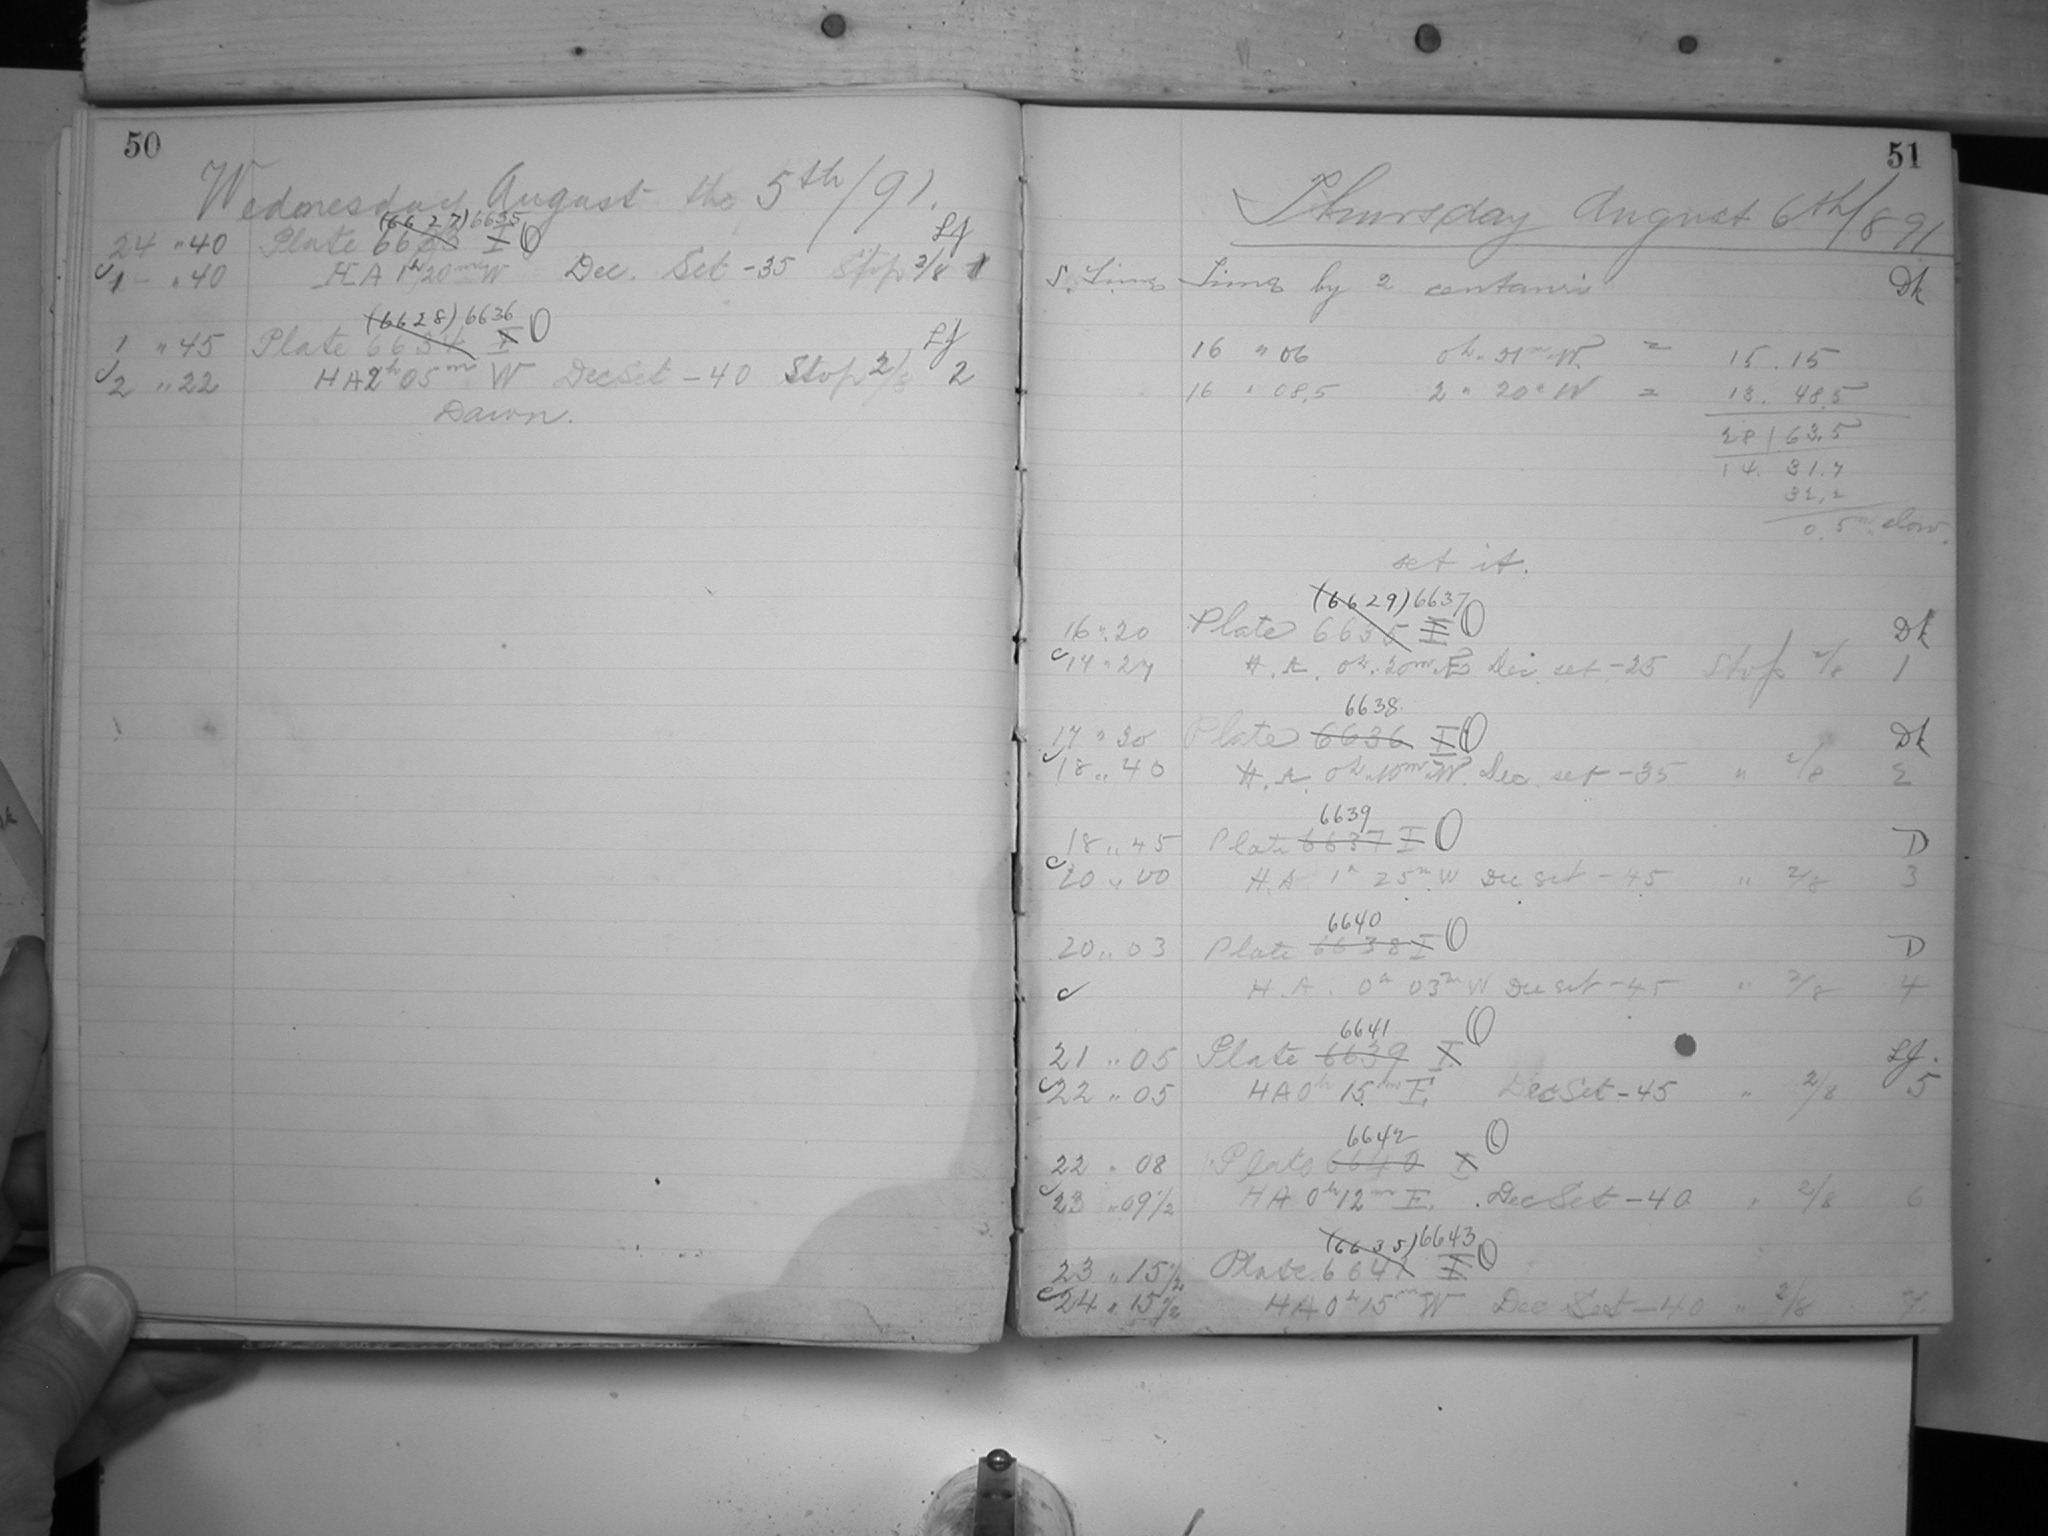 50
Wednesday August the 5th/91.
(6627) 6635
24 " 40 Plate 6633 I O LJ
1 - " 40 HA 1h 20m W Dec. Set -35 Stop 2/8 1
(6628) 6636
1 " 45 Plate 6634 I O LJ
2 " 22 HA 2h 05m W Dec Set -40 Stop 2/8 2
Dawn.
51
Thursday August 6th/891
S. Time Time by 2 centauri Dk
16 " 06 0h. 51m. W. = 15.15
16 " 08.5 2 " 20 " W = 13. 48.5
28 | 63.5
14. 31.7
32.2
0.5m slow.
set it.
(6629) 6637
16 " 20 Plate 6635 I O Dk
17 " 27 H.A. 0h. 20m. E Dec. set -25 Stop 2/8 1
6638
17 " 30 Plate 6636 I O Dk
18 " 40 H.A. 0h. 10m W. Dec. set -35 " 2/8 2
6639
18 " 45 Plate 6637 I O D
20 " 00 H.A. 1h 25m W Dec set -45 " 2/8 3
6640
20 " 03 Plate 6638 I O D
H.A. 0h 03m W Dec set -45 " 2/8 4
6641
21 " 05 Plate 6639 I O LJ.
22 " 05 HA 0h 15m E. Dec Set -45 " 2/8 5
6642
22 " 08 Plate 6640 I O
23 " 09 1/2 HA 0h 12m E. Dec Set -40 " 2/8 6
(6635) 6643
23 " 15 1/2 Plate 6641 I O
24 " 15 1/2 HA 0h 15m W Dec Set -40 " 2/8 7.